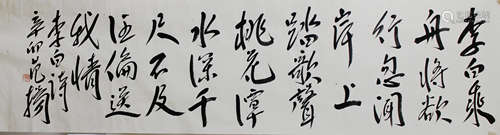 李白乘
舟將欲
行忽闻
岸上
踏歌聲
桃花潭
水深千
尺不及
汪倫送
我情
李白詩
辛卯范